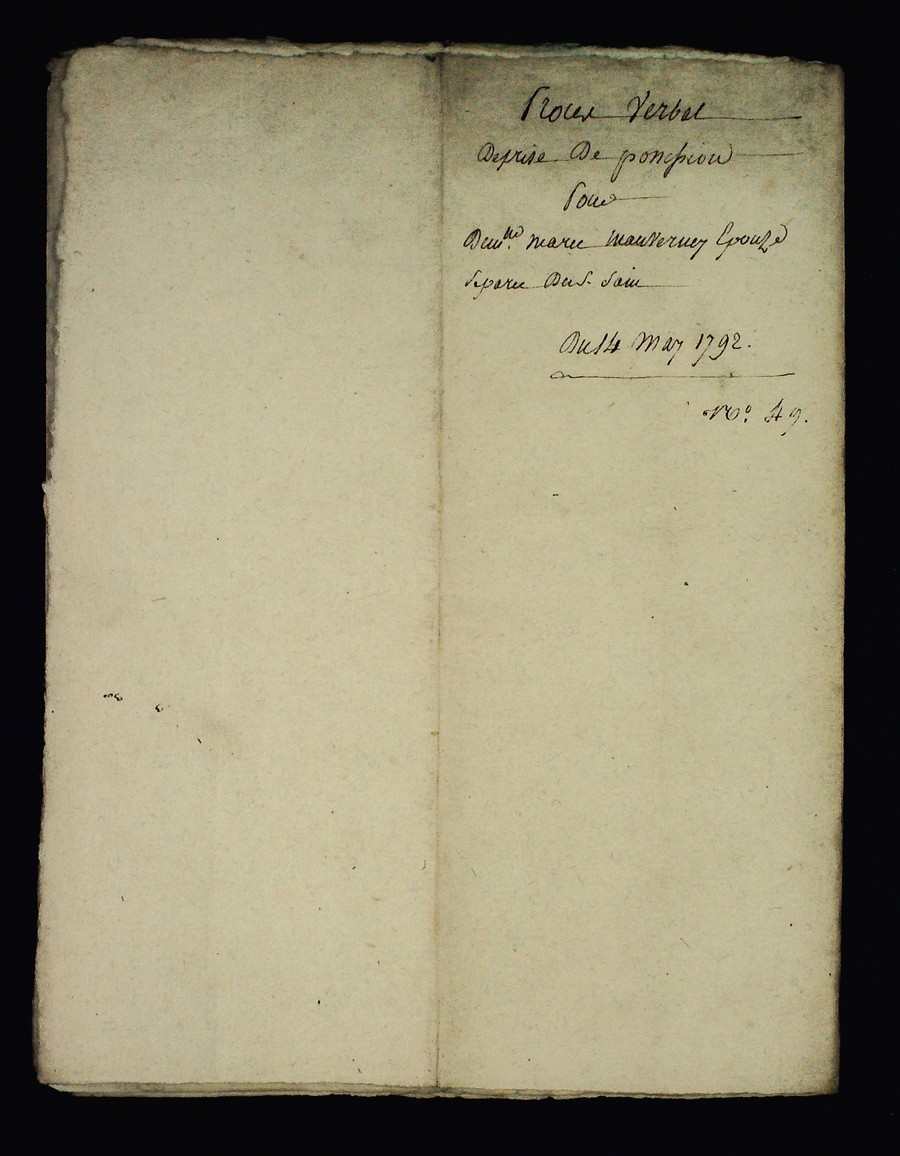 Proces Verbal
Deprise De possession
Pour
Dem.lle marie mauverney Epouze
separee Du S.
Du 14 May 1792.
N.o 49.